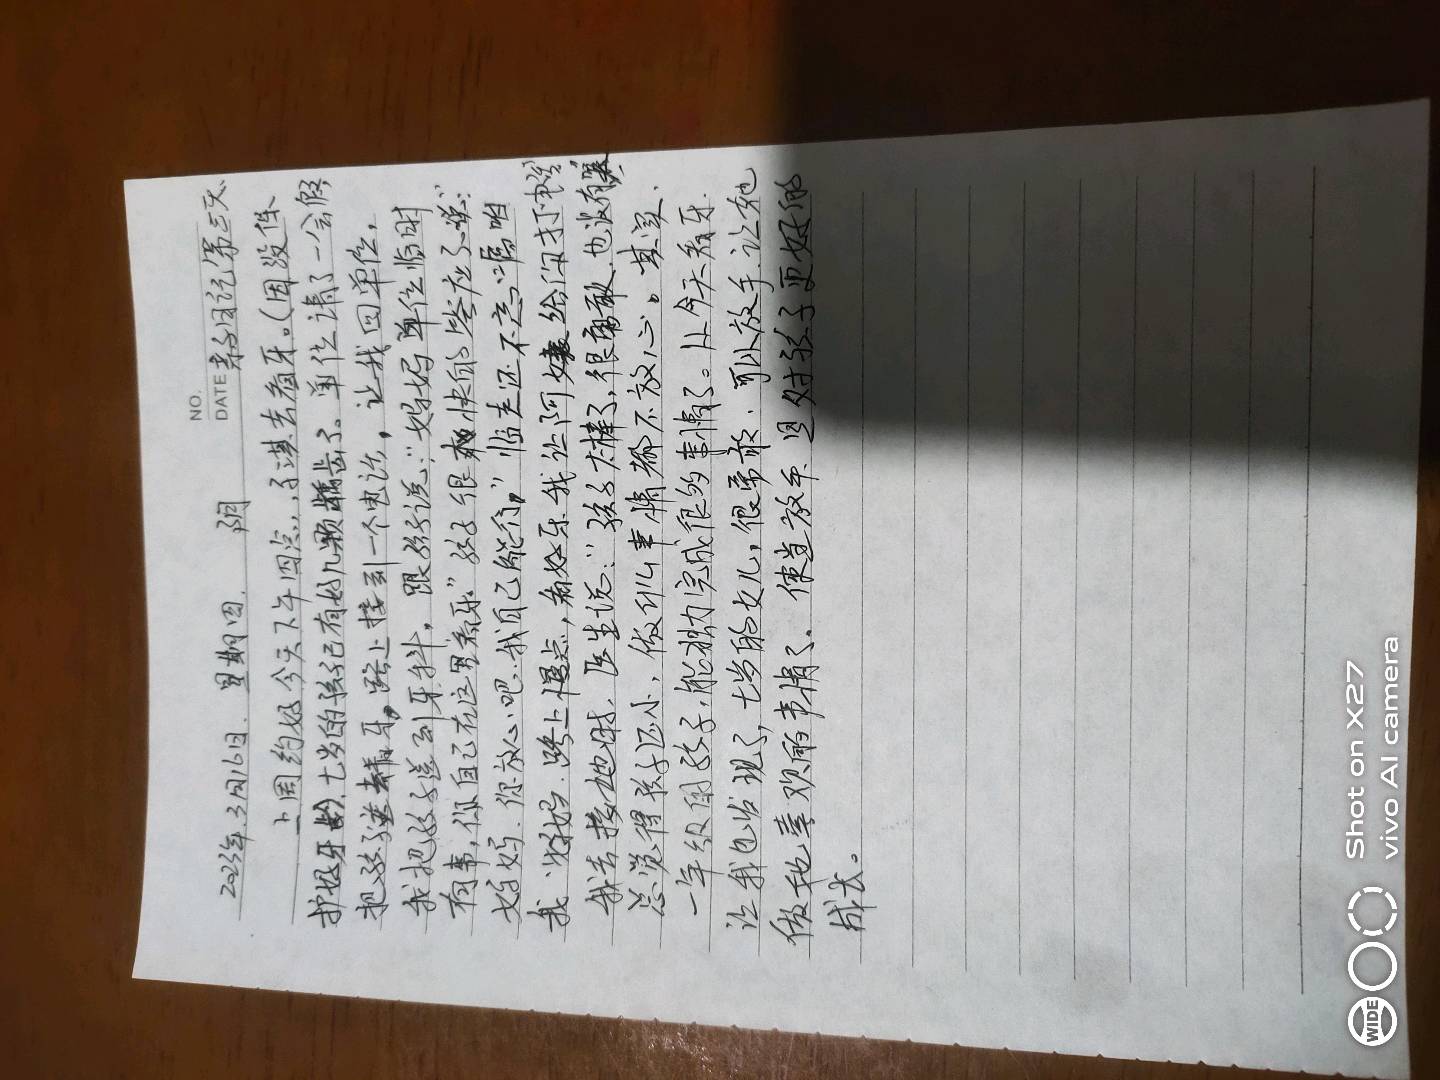 NO.
DATE 亲子日记第三天
2023年3月16日. 星期四. 阴
上周约好今天下午四点,子淇去看牙。(因没保
护好牙齿,七岁的孩子已有好几颗龋齿了。单位请了一会假
把孩子送去看牙,路上接到一个电话,让我回单位,
我把孩子送到牙科,跟孩子说:“妈妈单位临时
有事,你自己在这里看牙”孩子很快的答应了,说:
妈妈.你放心吧.我自己能行,”临走还不忘嘱咐
我“妈妈.路上慢点,看好牙我让阿姨给你打电话”
我去接她时.医生说:“孩子太棒了,很勇敢.也没有哭
总觉得孩子还小,做什么事情都不放心。其实.
一年级的孩子.能独力完成很多事情了。从今天看牙.
让我也发现了,七岁的女儿,很勇敢.可以放手让她
做她喜欢的事情了。适当放手.是对孩子更好的
成长。
WIDE
Shot on X27
vivo AI camera